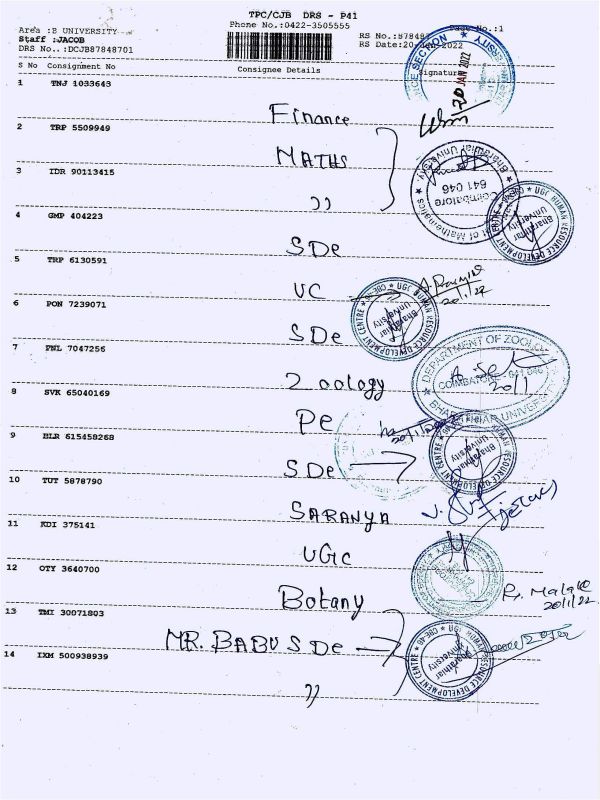 TPC/CJB DRS - P41
Area :B UNIVERSITY
Phone No.:0422-3505555
:1
Staff :JACOB
RS No.:87848
DRS No..:DCJB87848701
RS Date:20- 2022
S No Consignment No
Consignee Details
Signature
20 JAN 2022
1 TNJ 1033643
Finance
2 TRP 5509949
MATHS
3 IDR 90113415
"
Bharathiar University
Coimbatore 641 046
of Mathematics
UGC HUMAN RESOURCE DEVELOPMENT CENTRE
Bharathiar University
4 GMP 404223
SDe
5 TRP 6130591
UC
20/1/22
UGC HUMAN RESOURCE DEVELOPMENT CENTRE
Bharathiar University
6 PON 7239071
SDe
7 PNL 7047256
Zoology
DEPARTMENT OF ZOOLOGY
COIMBATORE 641 046
BHARATHIAR UNIVERSITY
20/1
8 SVK 65040169
Pe
9 BLR 615458268
SDe
UGC HUMAN RESOURCE DEVELOPMENT CENTRE
Bharathiar University
10 TUT 5878790
SARANYA
11 KDI 375141
UGC
12 OTY 3640700
Botany
20/1/22
13 TMI 30071803
MR. BABU SDe
UGC HUMAN RESOURCE DEVELOPMENT CENTRE
Bharathiar University
14 IXM 500938939
"